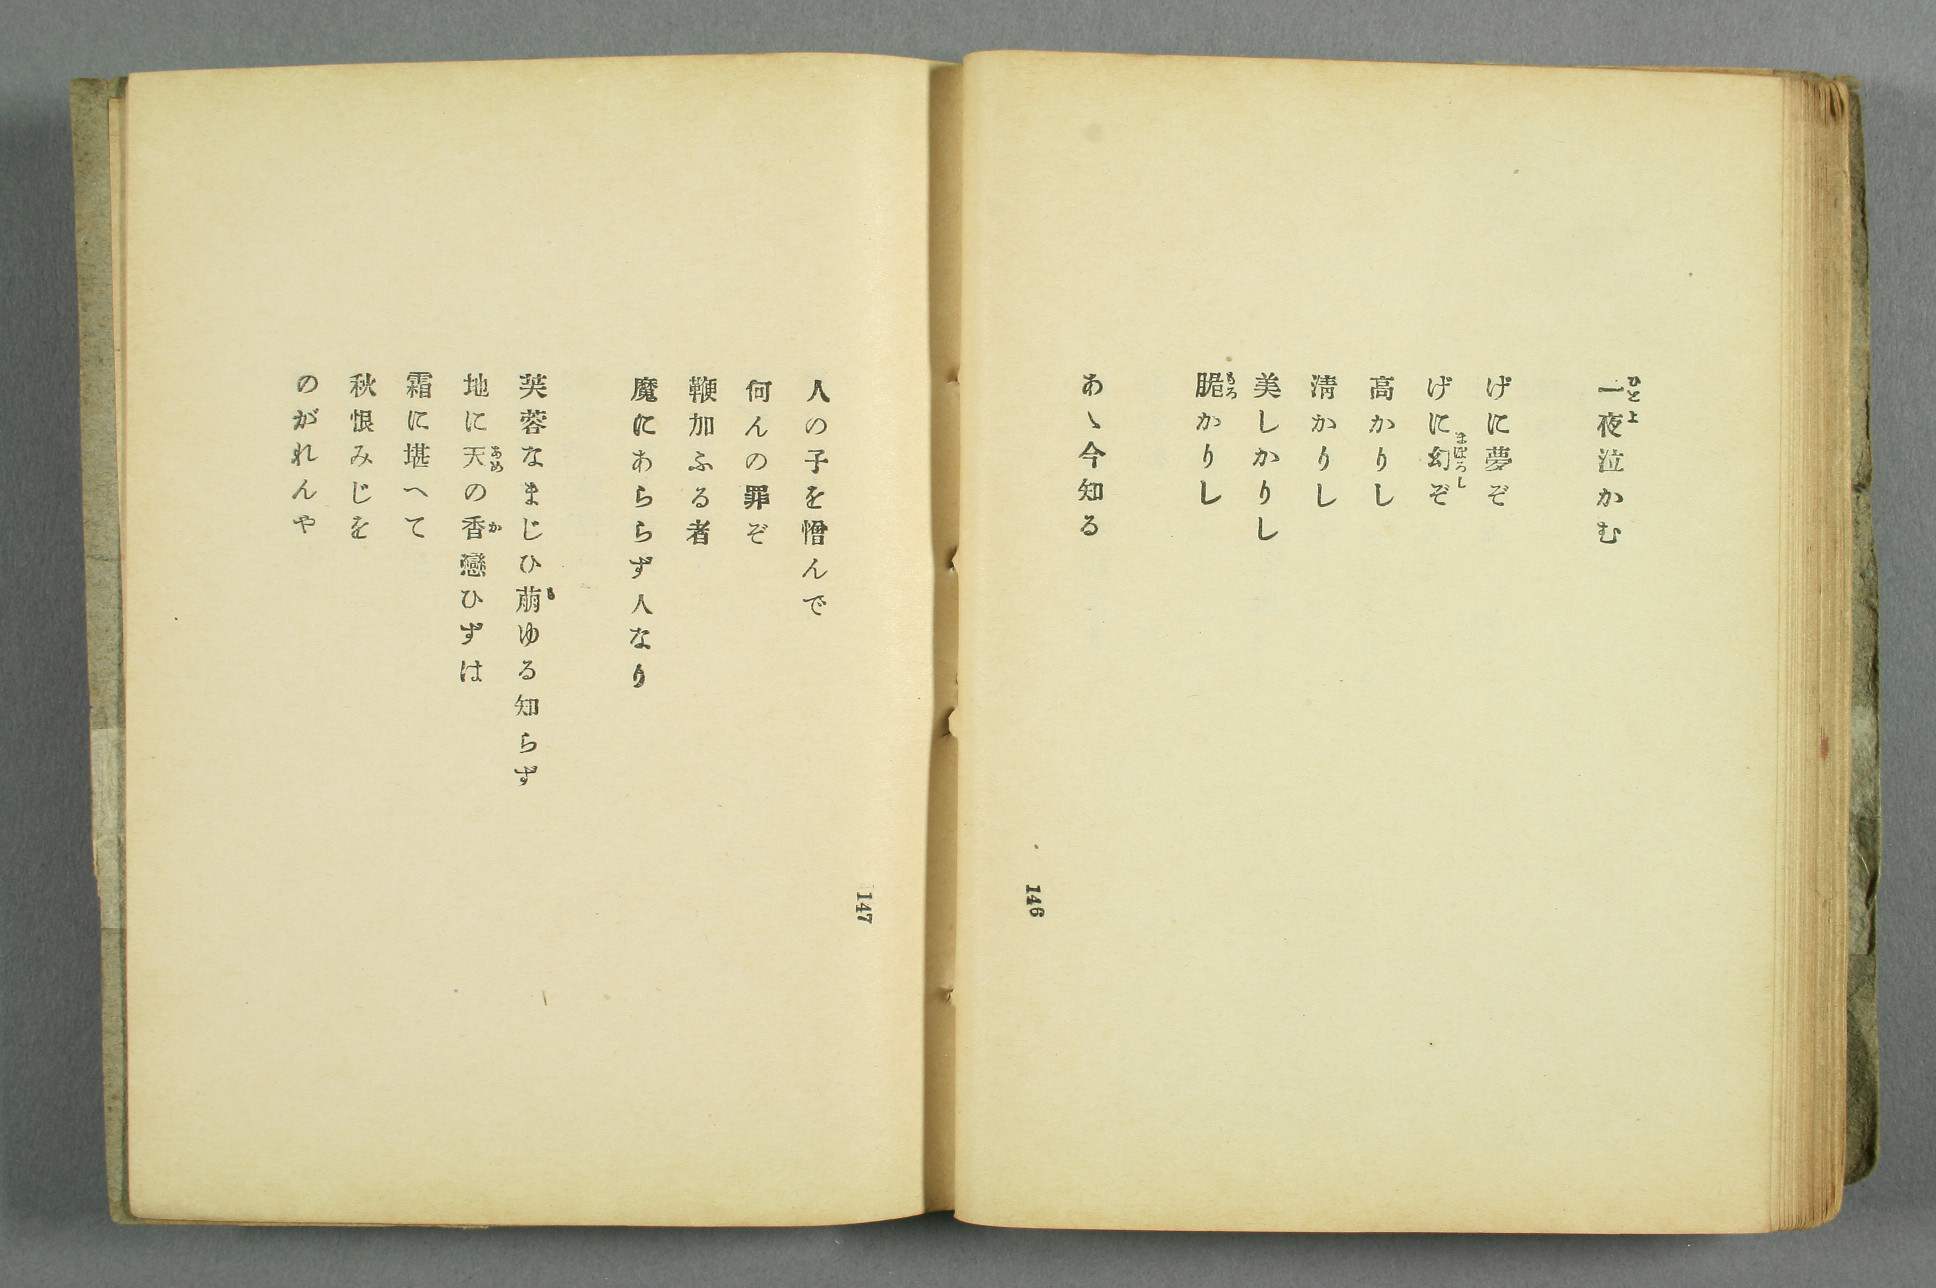 一夜泣かむ
げに夢ぞ
げに幻ぞ
高かりし
淸かりし
美しかりし
脆かりし
あゝ今知る
146
人の子を憎んで
何んの罪ぞ
鞭加ふる者
魔にあららず人なり
芙蓉なまじひ萠ゆる知らず
地に天の香戀ひずは
霜に堪へて
秋恨みじを
のがれんや
147